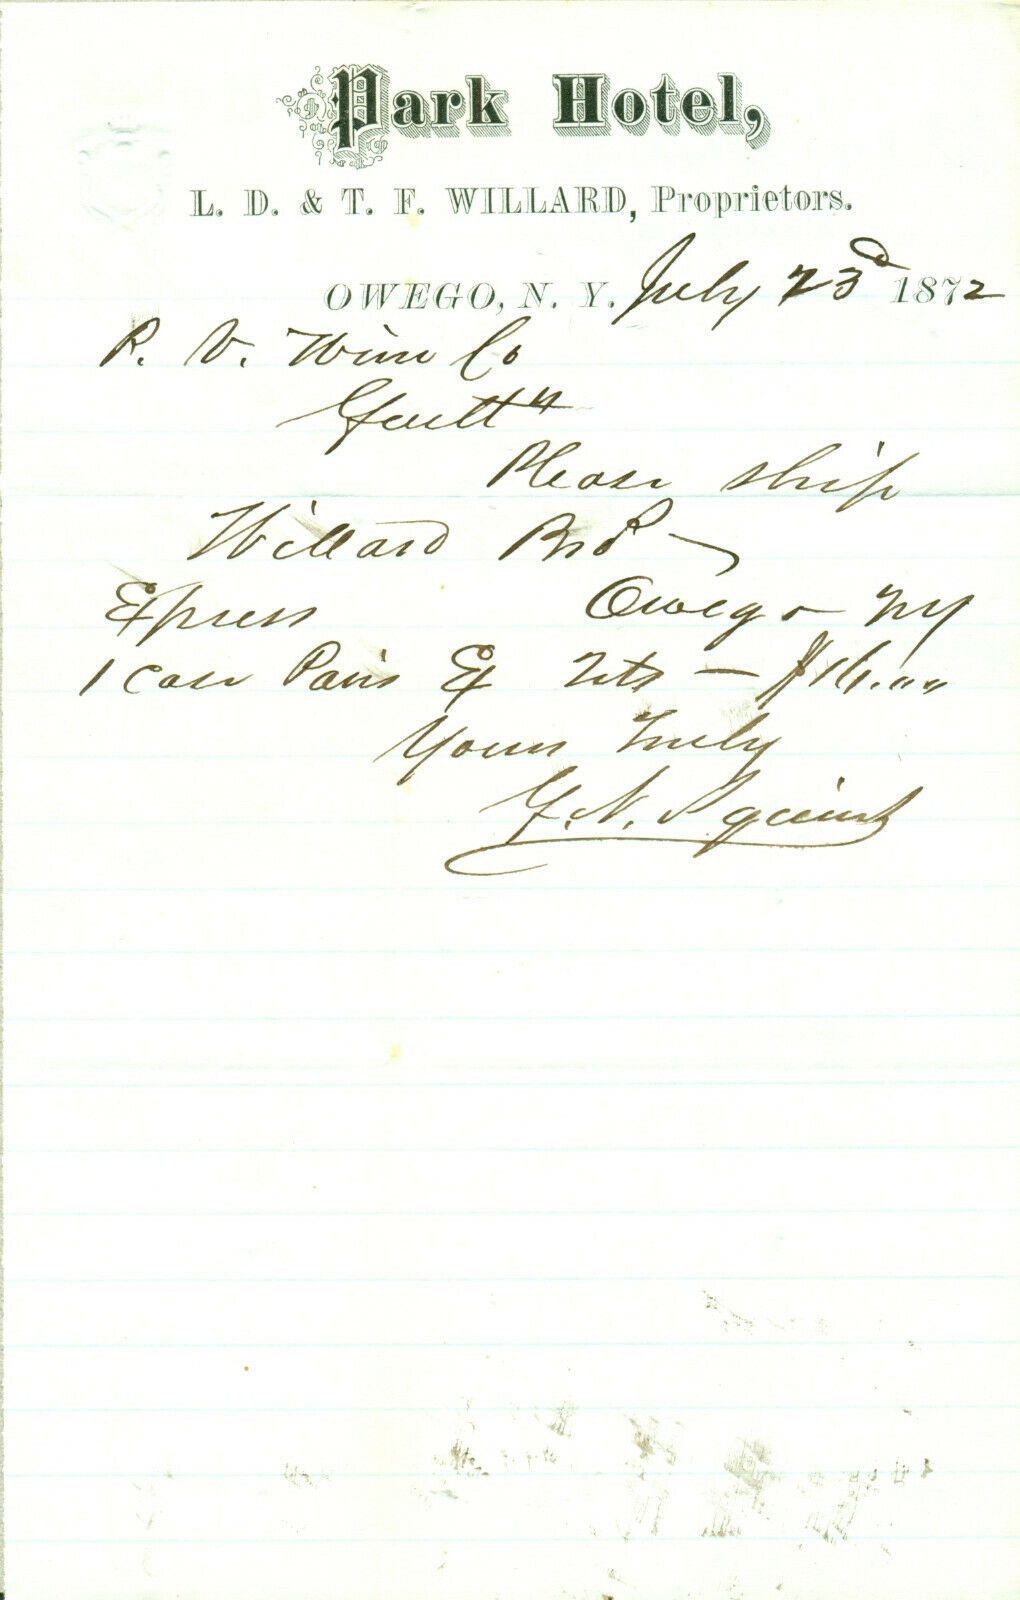 Park Hotel,
L. D. & T. F. WILLARD, Proprietors.
OWEGO, N. Y. July 23d 1872
P. V. Wine Co
Gentt"
Please ship
Willard Bro
Express Owego NY
1 case Paris Ex Qts — $16.""
Yours Truly
G. N.